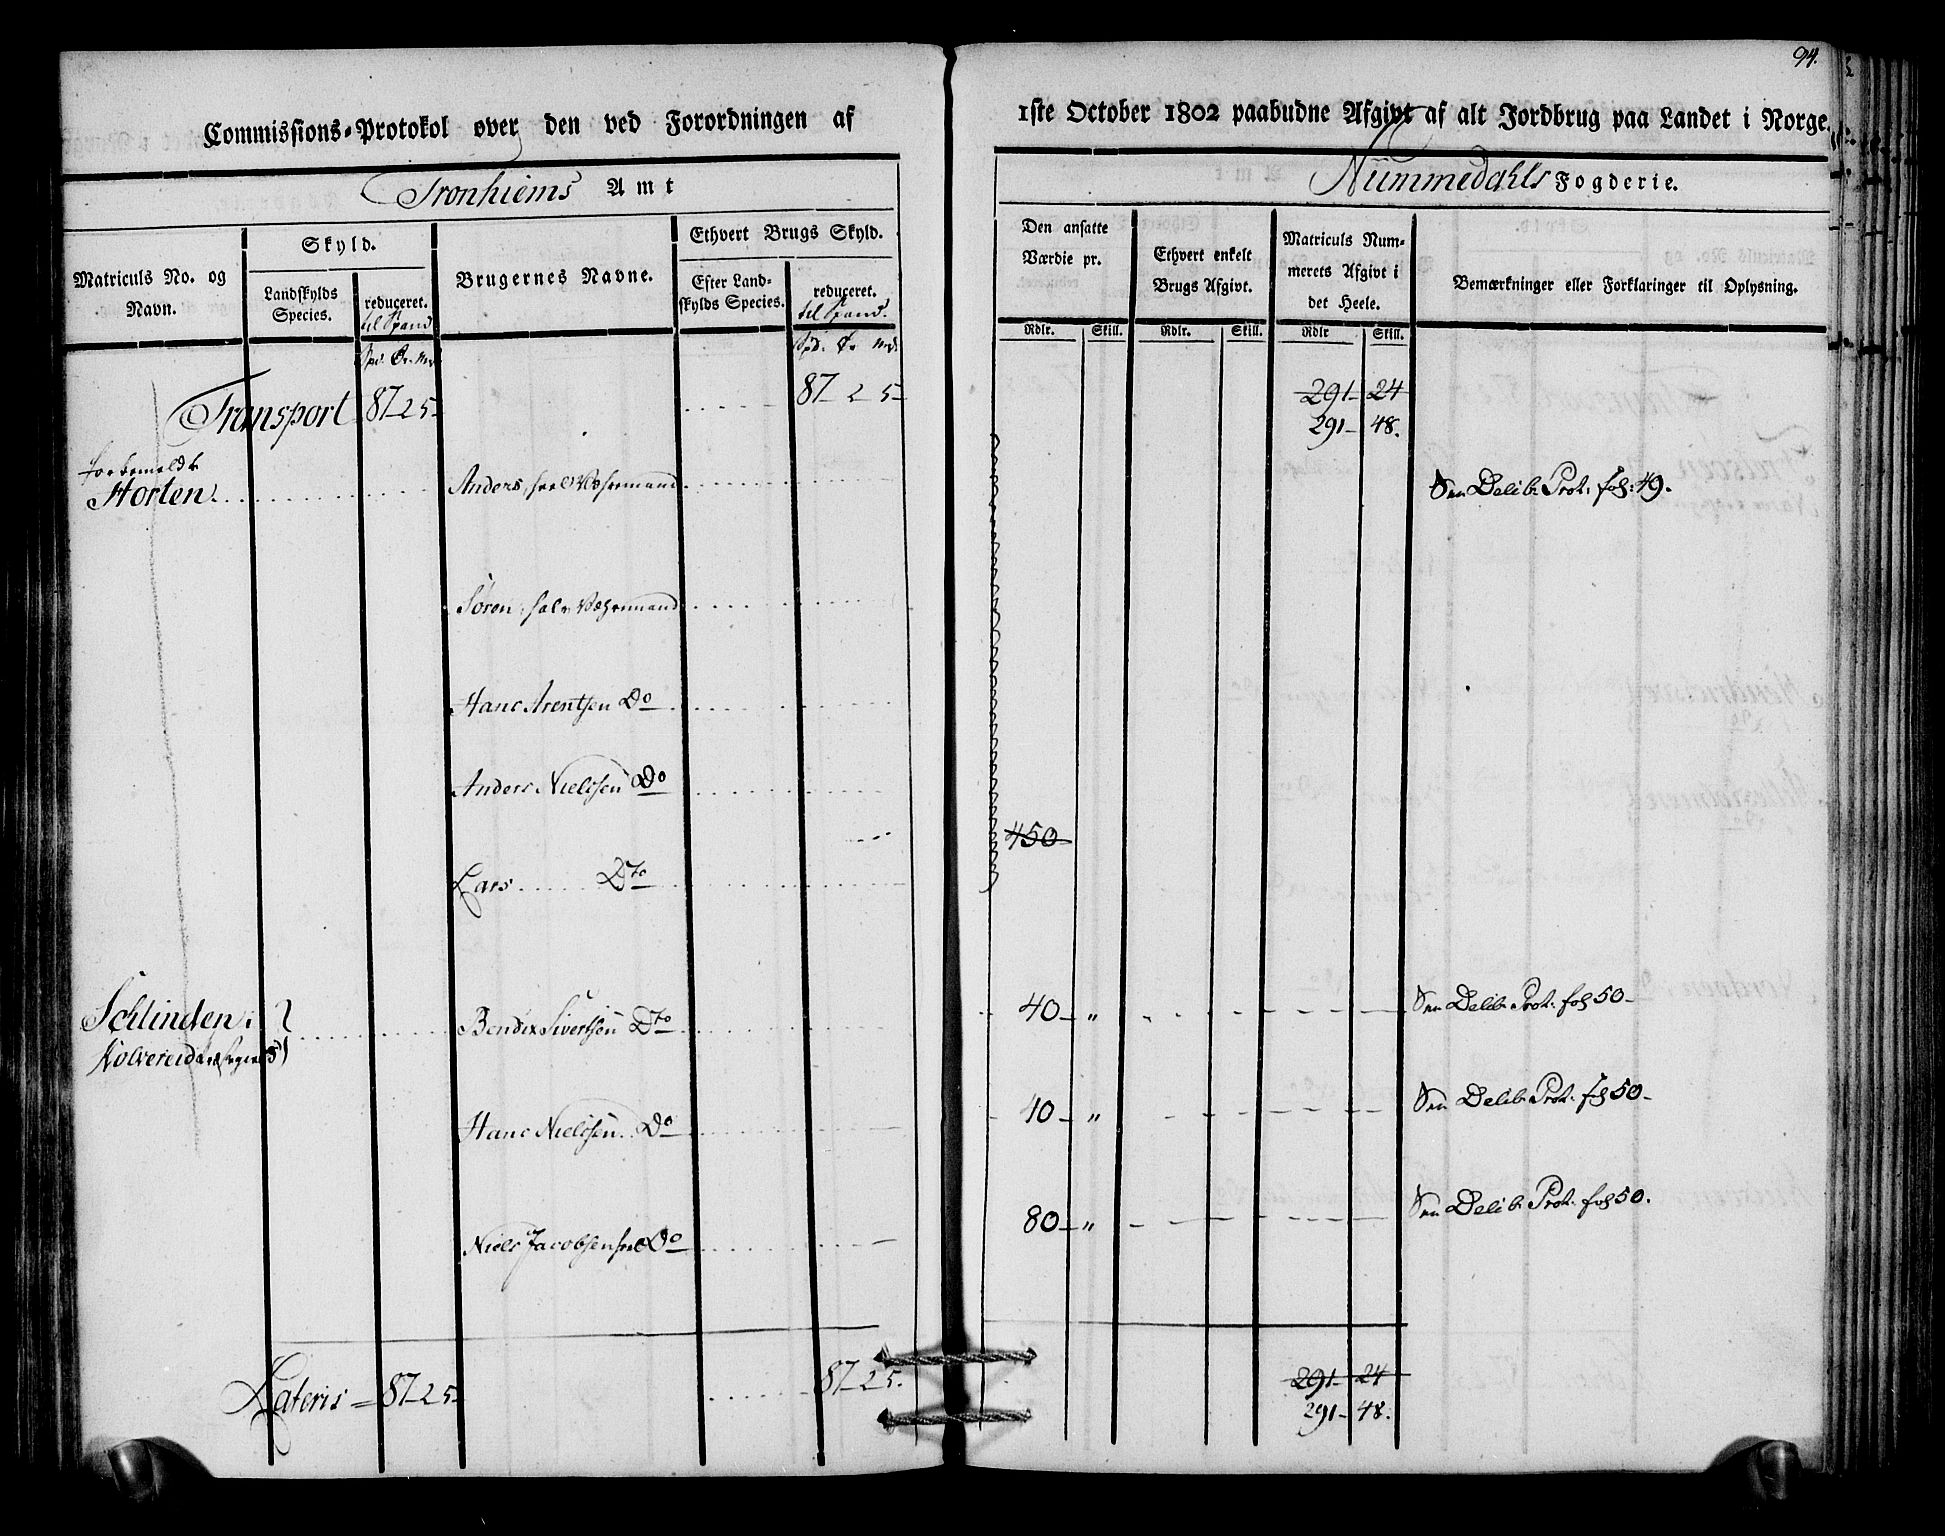 94.
Commissions-Protokol over den ved Forordningen af 1ste October 1802 paabudne Afgivt af alt Jordbrug paa Landet i Norge.
Tronhiems Amt
Nummedahls Fogderie.
Matriculs No. og Navn.
Skyld.
Landskylds Species.
reduceret.
til Spand
Brugernes Navne.
Ethvert Brugs Skyld.
Efter Landskylds Species.
reduceret.
til Spand.
Den ansatte Værdie pr.
Ethvert enkelt Brugs Afgivt.
Matriculs Nummerets Afgivt i det Heele.
Bemærkninger eller Forklaringer til Oplysning.
Rdlr. Skill. Rdlr. Skill. Rdlr Skill.
Spd. Ør. Mrk.
Spd. Ør Mrk.
Transport 87 2 5 87 2 5 291 24
291 48.
forbemeldte
Horten Anders, halv Vohrmand See Delib. Prot. fol: 49.
Søren, halv Vohrmand
Hans Arentsen Do
Anders Nielssen Do
450
Lars Dto
Schlinden i
Kolvereid Bendix Sivertsen Dto 40 " See Delib. Prot. fol 50
Hans Nielssen Do 40 " See Delib. Prot. fol 50
Niels Jacobsen Do 80 " See Delib. Prot. fol 50.
Lateris = 87 2 5 87 2 5. 291 24
291 48.